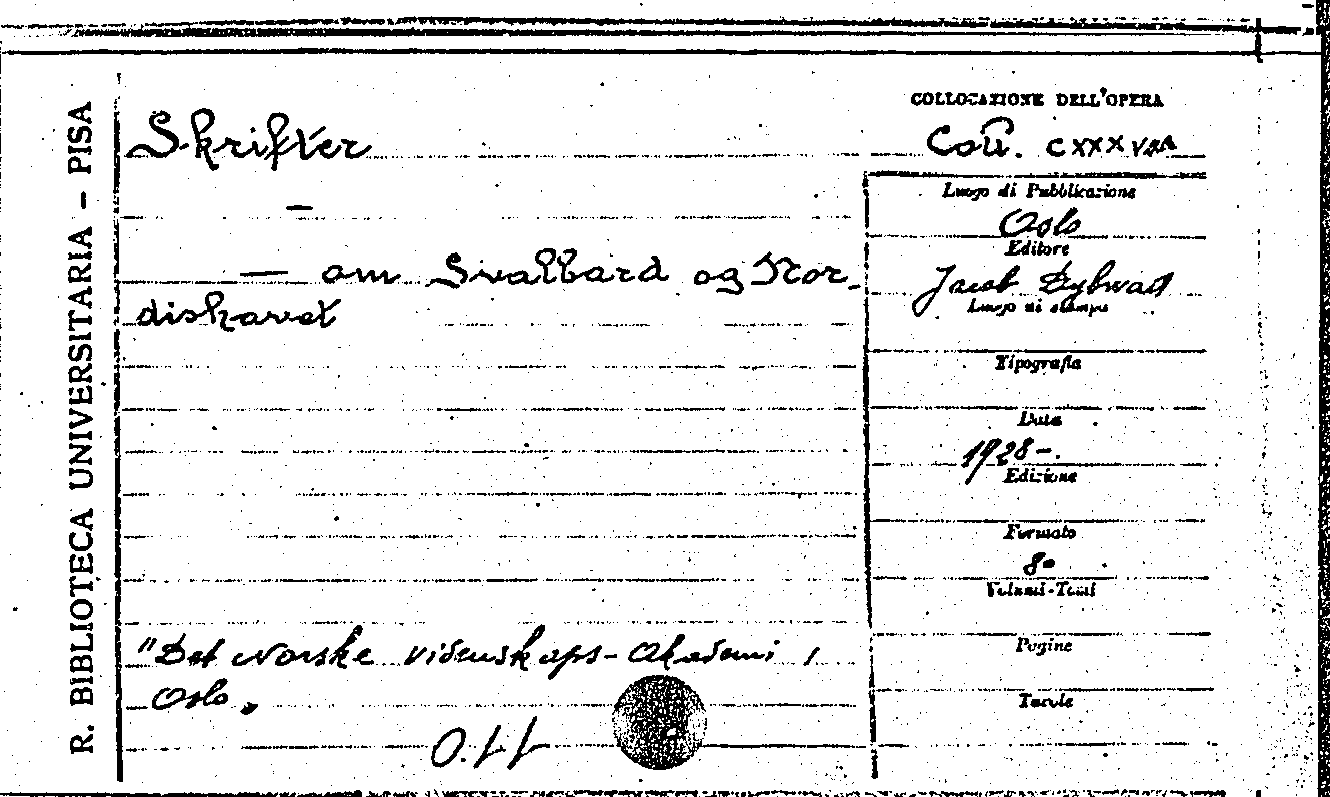 R. BIBLIOTECA UNIVERSITARIA – PISA
Skrifter
–
— om Svalbard og Nor-
dishavet
"Det Norske Videnskaps-Akademi i
Oslo„
COLLOCAZIONE DELL'OPERA
Coll. CXXXVIII
Luogo di Pubblicazione
Oslo
Editore
Jacob Dybwad
Luogo di stampa
Tipografia
Data
1928-.
Edizione
Formato
8°
Volumi-Tomi
Pagine
Tavole